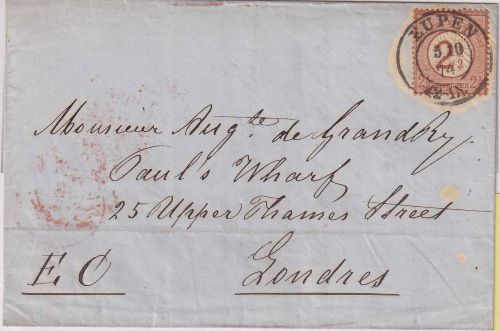 EUPEN
5 10
74
12-1N.
2
2½
Monsieur Augte de GrandRy
Paul's Wharf
25 Upper Thames Street
E. C Londres